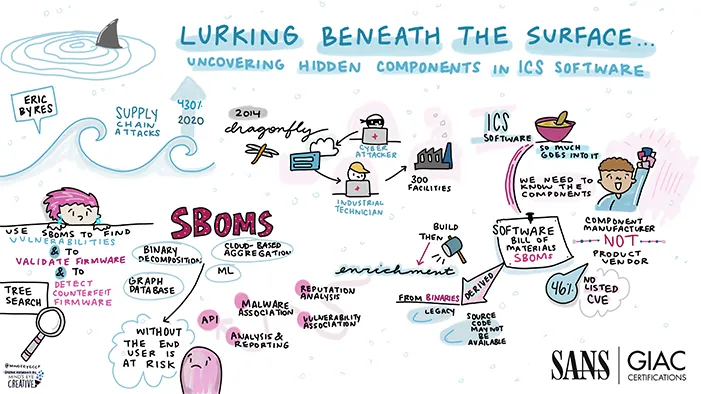 LURKING BENEATH THE SURFACE...
UNCOVERING HIDDEN COMPONENTS IN ICS SOFTWARE
ERIC
BYRES
SUPPLY
CHAIN
ATTACKS
430%
2020
2014
dragonfly
CYBER
ATTACKER
INDUSTRIAL
TECHNICIAN
300
FACILITIES
ICS
SOFTWARE
SO MUCH
GOES INTO IT
WE NEED TO
KNOW THE
COMPONENTS
SOFTWARE
BILL OF
MATERIALS
SBOMS
COMPONENT
MANUFACTURER
NOT
PRODUCT
VENDOR
46%
NO
LISTED
CVE
USE SBOMS TO FIND
VULNERABILITIES
& TO
VALIDATE FIRMWARE
& TO
DETECT
COUNTERFEIT
FIRMWARE
TREE
SEARCH
SBOMS
BINARY
DECOMPOSITION
CLOUD-BASED
AGGREGATION
GRAPH
DATABASE
ML
WITHOUT
THE END
USER IS
AT RISK
BUILD
THEN
enrichment
REPUTATION
ANALYSIS
MALWARE
ASSOCIATION
API
VULNERABILITY
ASSOCIATION
ANALYSIS &
REPORTING
DERIVED
FROM BINARIES
LEGACY
SOURCE
CODE
MAY NOT
BE
AVAILABLE
MIND'S EYE
CREATIVE
SANS
GIAC
CERTIFICATIONS